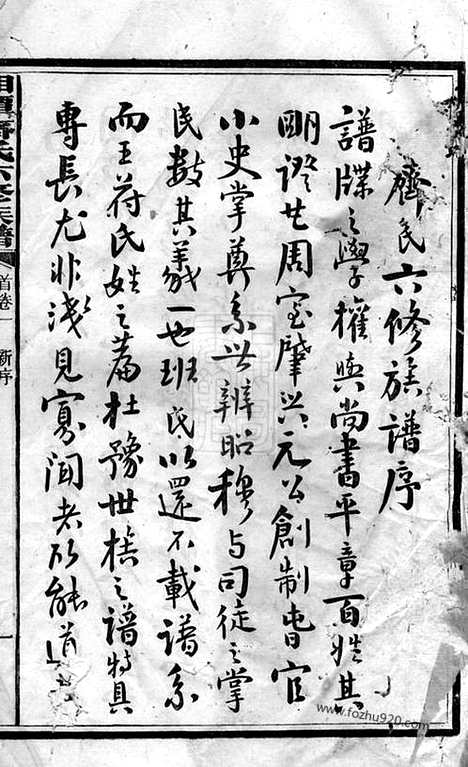 齊氏六修族譜序
譜牒之學權輿尚書平章百姓其
明證也周室肇興元公創制春官
小史掌奠系世辨昭穆與司徒之掌
民數其義一也班氏以還不載譜系
而王符氏姓之篇杜豫世族之譜特具
專長尤非淺見寡聞者所能道
湘潭齊氏六修族譜
首卷一 新序
www.fozhu920.com